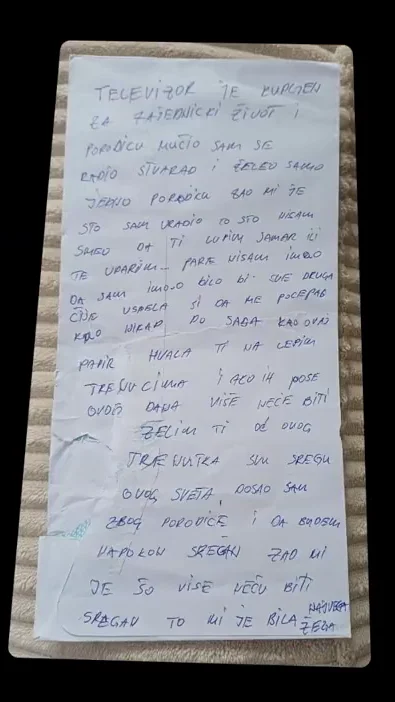 TELEVIZOR JE KUPLJEN
ZA ZAJEDNICKI ŽIVOT I
PORODICU MUČIO SAM SE
RADIO STVARAO I ŽELEO SAMO
JEDNO PORODICU ŽAO MI JE
STO SAM URADIO TO STO NISAM
SMEO DA TI LUPIM SAMAR ILI
TE UDARIM PARE NISAM IMAO
DA SAM IMAO BILO BI SVE DRUGA
ČIJE USPELA SI DA ME POCEPAŠ
KAO NIKAD DO SADA KAO OVAJ
PAPIR HVALA TI NA LEPIM
TRENUCIMA I AKO IH POSE
OVOG DANA VIŠE NEĆE BITI
ŽELIM TI OD OVOG
TRENUTKA SVU SREĆU
OVOG SVETA, DOSAO SAM
ZBOG PORODICE I DA BUDEM
NAPOKON SREĆAN ŽAO MI
JE ŠO VISE NEĆU BITI
SREĆAN TO MI JE BILA NAJVEĆA
ŽELJA